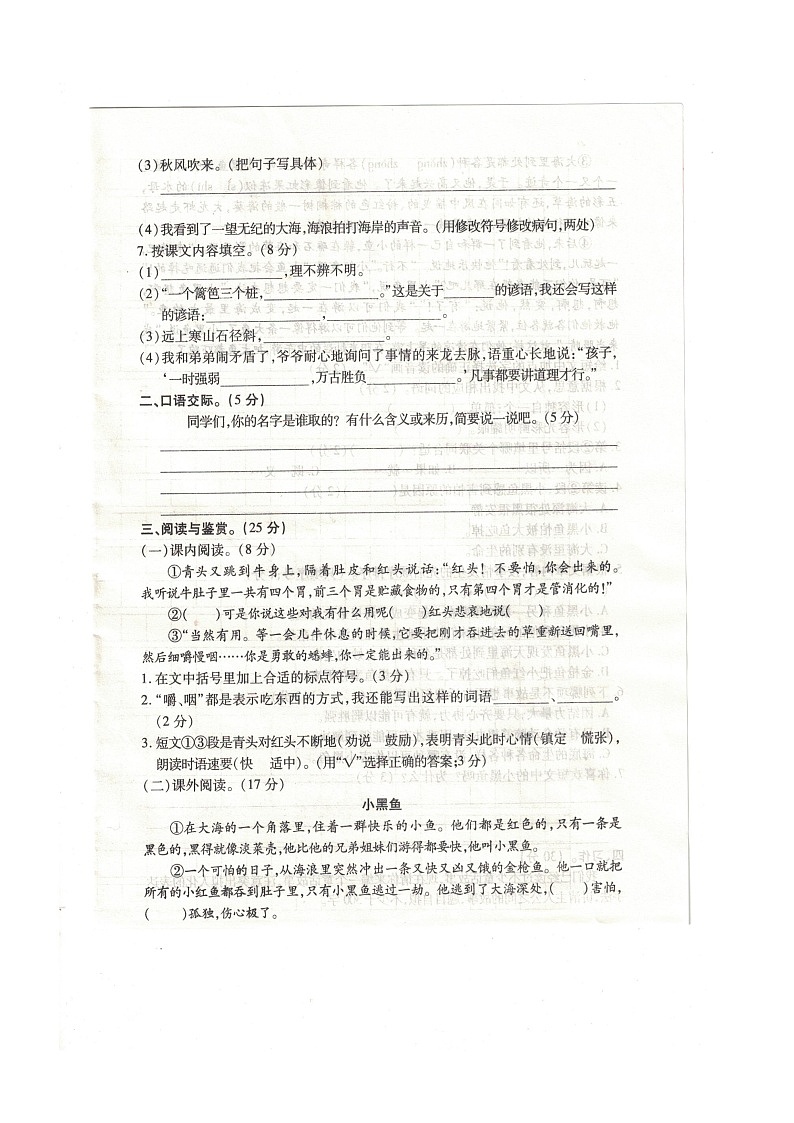 (3)秋风吹来。(把句子写具体)
(4)我看到了一望无纪的大海,海浪拍打海岸的声音。(用修改符号修改病句,两处)
7.按课文内容填空。(8分)
(1)____________,理不辨不明。
(2)“一个篱笆三个桩,____________。”这是关于______的谚语,我还会写这样
的谚语:____________,____________。
(3)远上寒山石径斜,____________。
(4)我和弟弟闹矛盾了,爷爷耐心地询问了事情的来龙去脉,语重心长地说:“孩子,
‘一时强弱__________,万古胜负__________。’凡事都要讲道理才行。”
二、口语交际。(5分)
同学们,你的名字是谁取的?有什么含义或来历,简要说一说吧。(5分)
三、阅读与鉴赏。(25分)
(一)课内阅读。(8分)
①青头又跳到牛身上,隔着肚皮和红头说话:“红头!不要怕,你会出来的。
我听说牛肚子里一共有四个胃,前三个胃是贮藏食物的,只有第四个胃才是管消化的!”
②(  )可是你说这些对我有什么用呢(  )红头悲哀地说(  )
③“当然有用。等一会儿牛休息的时候,它要把刚才吞进去的草重新送回嘴里,
然后细嚼慢咽……你是勇敢的蟋蟀,你一定能出来的。”
1.在文中括号里加上合适的标点符号。(3分)
2.“嚼、咽”都是表示吃东西的方式,我还能写出这样的词语______、______。
(2分)
3.短文①③段是青头对红头不断地(劝说 鼓励),表明青头此时心情(镇定 慌张),
朗读时语速要(快 适中)。(用“√”选择正确的答案;3分)
(二)课外阅读。(17分)
小黑鱼
①在大海的一个角落里,住着一群快乐的小鱼。他们都是红色的,只有一条是
黑色的,黑得就像淡菜壳,他比他的兄弟姐妹们游得都要快,他叫小黑鱼。
②一个可怕的日子,从海浪里突然冲出一条又快又凶又饿的金枪鱼。他一口就把
所有的小红鱼都吞到肚子里,只有小黑鱼逃过一劫。他逃到了大海深处,(  )害怕,
(  )孤独,伤心极了。